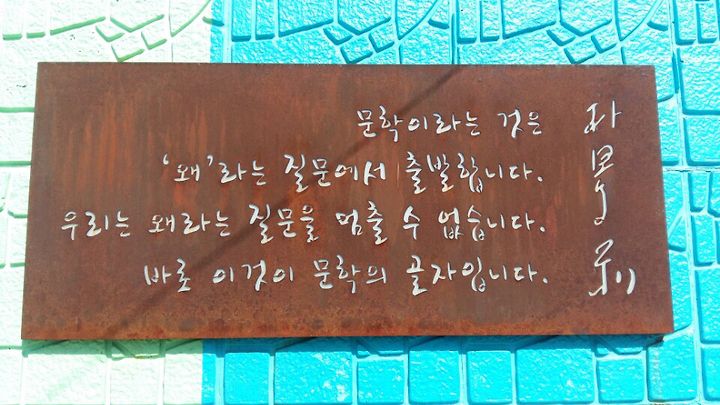 문학이라는 것은
'왜'라는 질문에서 출발합니다.
우리는 왜라는 질문을 멈출 수 없습니다.
바로 이것이 문학의 골자입니다.
朴景利